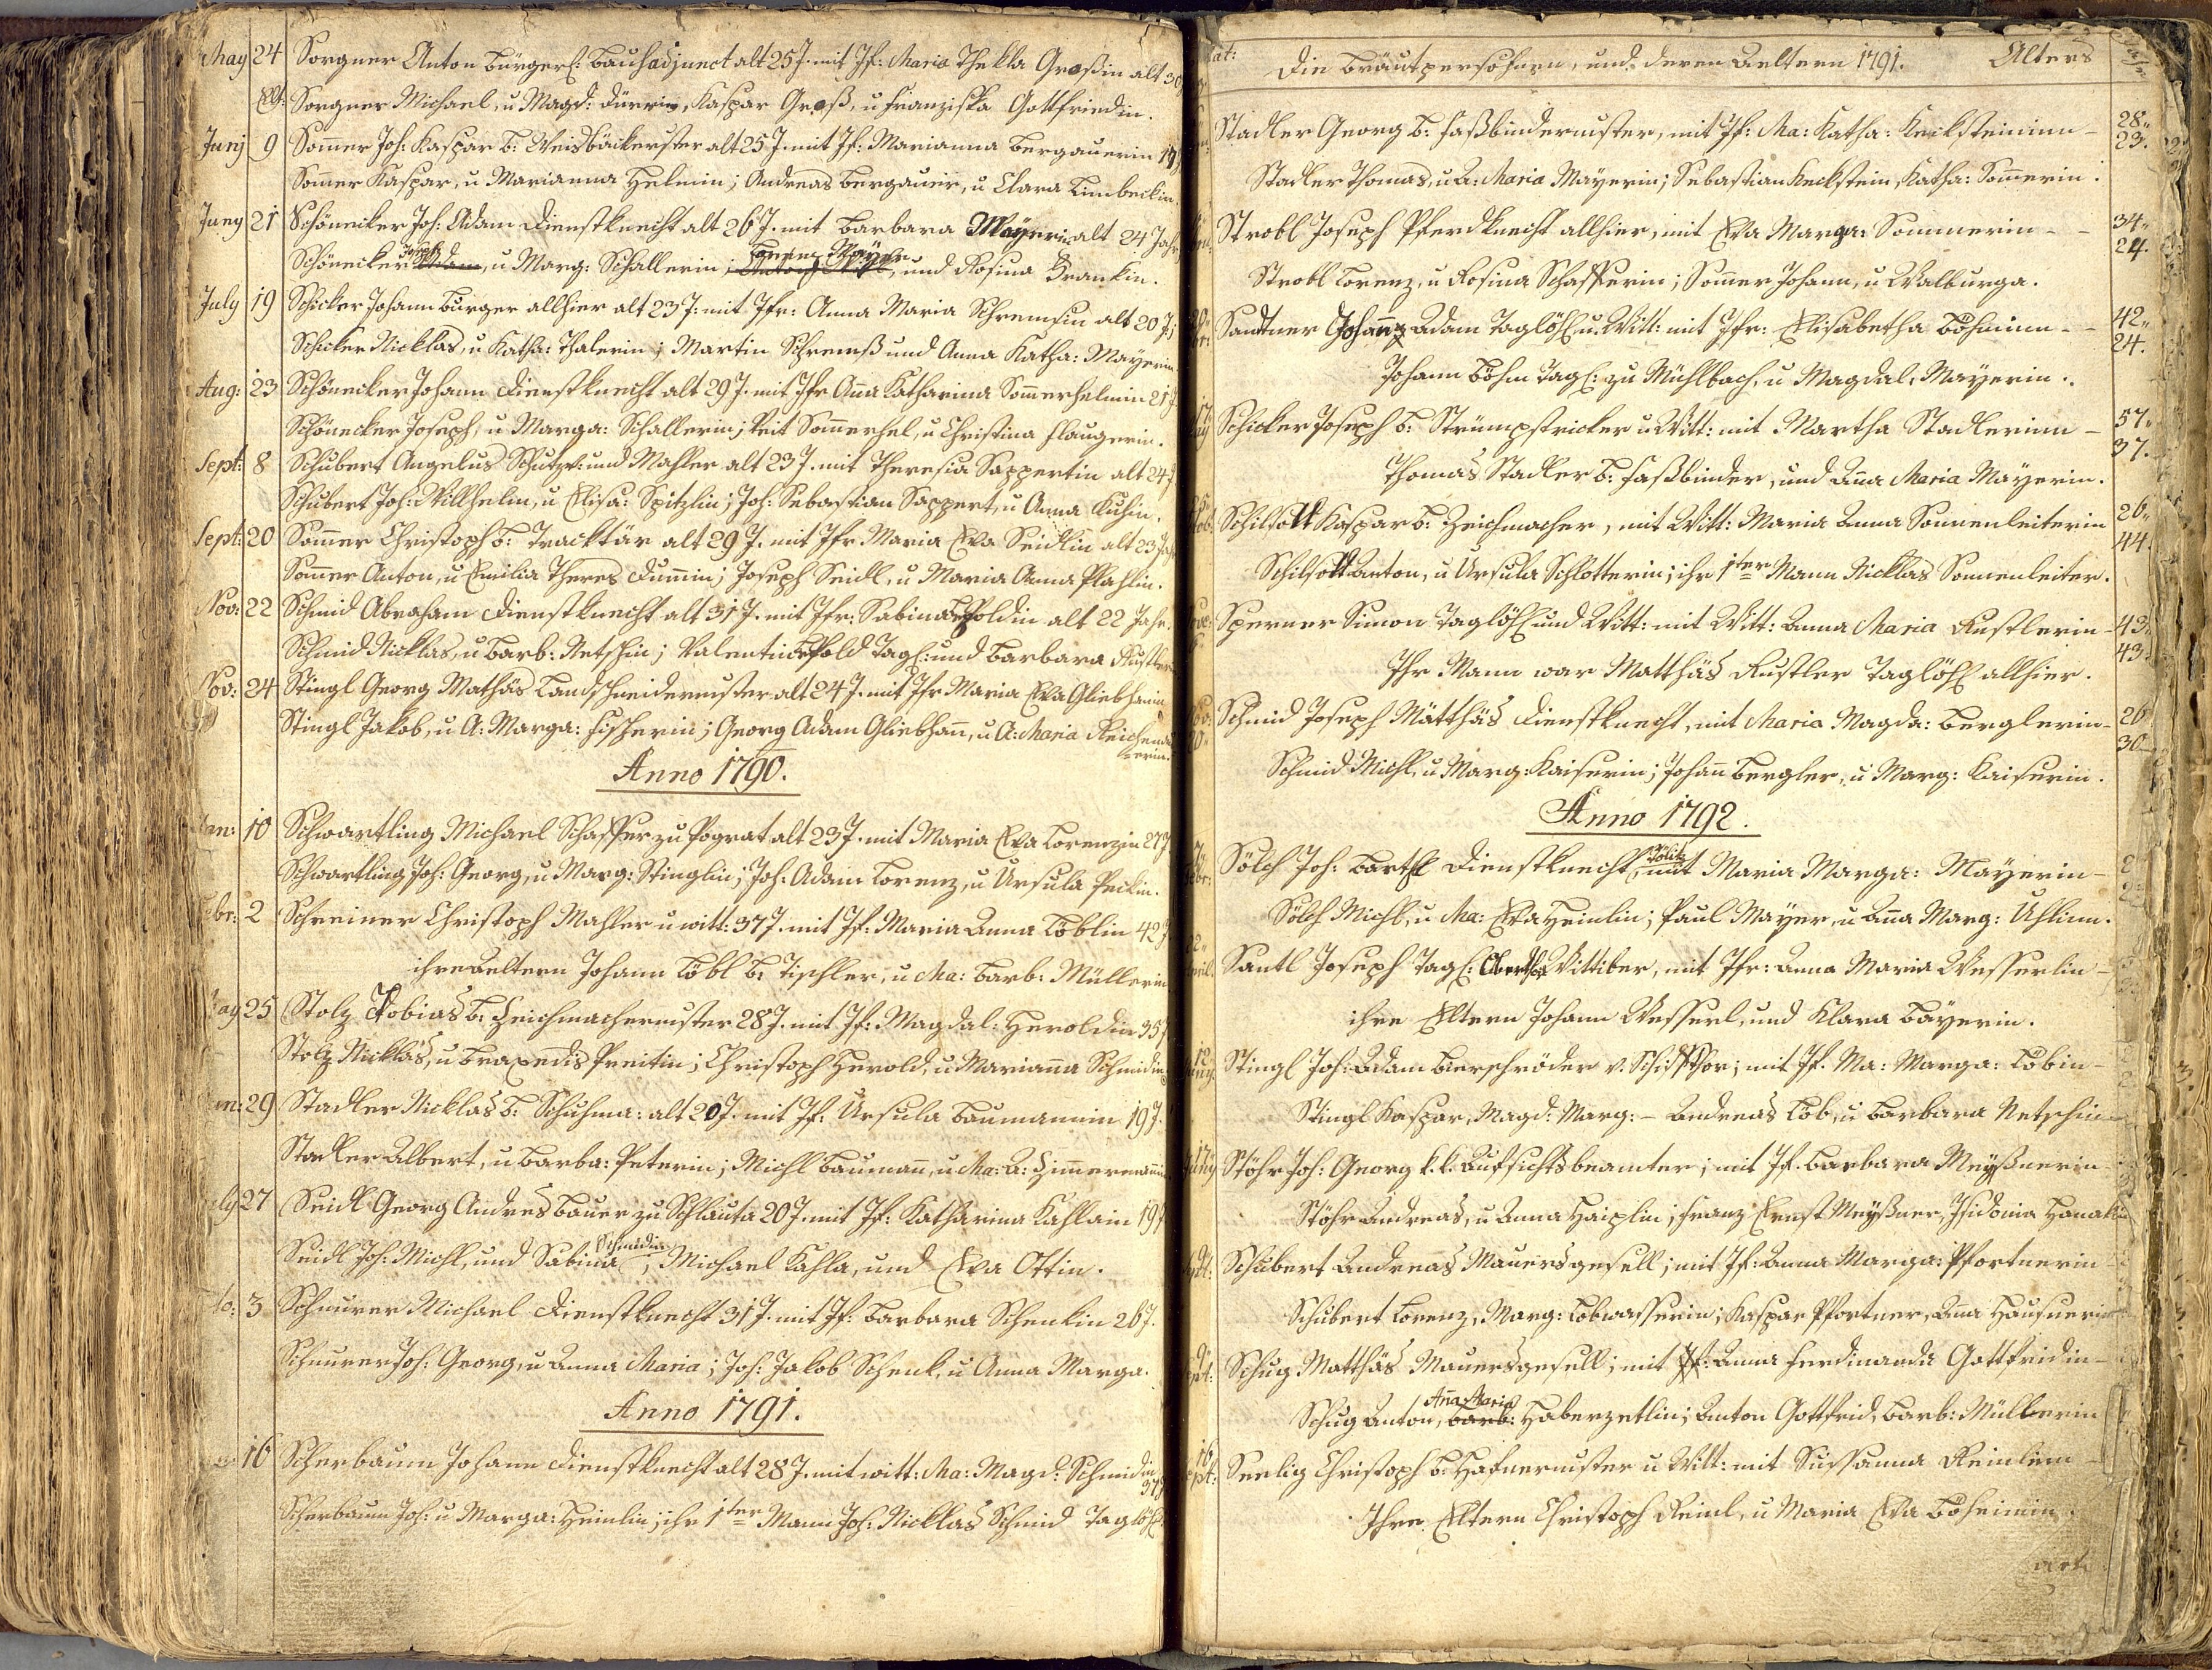 May 24 Sorgner Anton bürgerl: Bauhadjunct alt 25 J. mit Jf: Maria Thekla Großin alt 30
Elt: Sorgner Michael, u Magd: Dürrin, Kaspar Groß, u Franziska Gottfriedin.
Junj 9 Som̄er Joh: Kaspar b: Weisbäckerster alt 25 J. mit Jf: Marianna Bergauerin 19
Som̄er Kaspar, u Marianna Helmin; Andreas Bergauer, u Clara Limbeckin.
Juny 21 Schönecker Joh: Adam Dienstknecht alt 26 J. mit Barbara Mayerin alt 24 Jahr
Schönecker Joseph, u Marg: Schallerin; Lorenz Mayer, und Rosina Brankin.
July 19 Schicker Johann Burger allhier alt 23 J: mit Jfr: Anna Maria Schremsin alt 20 J;
Schicker Nicklas, u Katha: Thalerin; Martin Schremß und Anna Katha: Mayerin.
Aug: 23 Schönecker Johann Dienstknecht alt 29 J. mit Jfr Ana Katharina Som̄erhelmin 21 J
Schönecker Joseph, u Marga: Schallerin; Veit Som̄erhel, u Christina Flaugerin.
Sept: 8 Schubert Angelus Schutzv: und Mahler alt 23 J. mit Theresia Sappertin alt 24 J
Schubert Joh: Willhelm, u Elisa: Spitzlin; Joh: Sebastian Sappert, u Anna Kuhin.
Sept: 20 Som̄er Christoph b: Tracktär alt 29 J. mit Jfr Maria Eva Seidlin alt 23 Jah
Som̄er Anton, u Emilia Theres Dum̄in; Joseph Seidl, u Maria Anna Plahlin.
Nov: 22 Schmid Abraham Dienstknecht alt 31 J. mit Jfr: Sabina Lippoldin alt 22 Jahr.
Schmid Nicklas, u Barb: Netschin; Valentin Lippold Tagl: und Barbara Rustler
Nov: 24 Stingl Georg Mathäs Landschneidermster alt 24 J. mit Jfr Maria Eva Gliebhanin
Stingl Jakob, u A: Marga: Fischerin; Georg Adam Gliebhan̄, u A: Maria Reichenauerin.
Anno 1790.
Jan: 10 Schwartling Michael Schaffer zu Pograt alt 23 J. mit Maria Eva Lorenzin 27 J
Schwartling Joh: Georg, u Marg: Stinglin; Joh: Adam Lorenz, u Ursula Peckin.
Febr: 2 Schreiner Christoph Mahler u witt: 37 J. mit Jf: Maria Anna Löblin 42 J
ihre Aeltern Johann Löbl b: Tischler, u Ma: Barb: Müllerin
May 25 Stolz Tobias b: Zeichmachermster 28 J. mit Jf: Magdal: Heroldin 35 J
Stolz Nicklas, u Braxendis Preitin; Christoph Herold, u Marian̄a Schmidin
Jun: 29 Stadler Nicklas b: Schuhma: alt 20 J. mit Jf: Ursula Baumannin 19 J.
Stadler Albert, u Barba: Peterin; Michl Bauman̄, u Ma: A: Zim̄erman̄in
July 27 Seidl Georg Andres Bauer zu Schlauta 20 J. mit Jf: Katharina Kahlain 19 J
Seidl Joh: Michl, und Sabina Schmidin, Michael Kahla, und Eva Ottin.
3 Schnurer Michael Dienstknecht 31 J. mit Jf: Barbara Schenkin 26 J.
Schnurer Joh: Georg, u Anna Maria; Joh: Jakob Schenk, u Anna Marga.
Anno 1791.
16 Scherbaum Johann Dienstknecht alt 28 J. mit witt: Ma: Magd: Schmidin 37 J
Scherbaum Joh: u Marga: Heinlin; ihr 1ter Mann Joh: Nicklas Schmid Taglöh:
Die Brautpersohnen, und deren Aeltern 1791. Alters
Stadler Georg b: Faßbindermster, mit Jf: Ma: Katha: Kecksteininn - 28. 23.
Stadler Thomas, u A: Maria Mayerin; Sebastian Keckstein, Katha: Som̄erin.
Strobl Joseph Pferdknecht allhier, mit Eva Marga: Sommerin - - 34. 24.
Strobl Lorenz, u Rosina Schafferin; Som̄er Johann, u Walburga.
Sandtner Johann Adam Taglöh: u Witt: mit Jfr: Elisabetha Böhminn - - 42. 24.
Johann Böhm Tagl: zu Mühlbach, u Magdal: Mayerin.
Schicker Joseph b: Strumpfstricker u Witt: mit Martha Stadlerinn - 57. 37.
Thomas Stadler b: Faßbinder, und An̄a Maria Mayerin.
Schilsott Kaspar b: Zeichmacher, mit Witt: Maria Anna Sonnenleiterin 26. 44.
Schilsott Anton, u Ursula Schlotterin; ihr 1ter Mann Nicklas Sonnenleiter.
Sperner Simon Taglöh: und Witt: mit Witt: Anna Maria Rustlerin - 43. 43.
Ihr Mann war Matthäs Rustler Taglöh: allhier.
Schmid Joseph Matthäs Dienstknecht, mit Maria Magda: Berglerin - 26 30
Schmid Michl, u Marg: Kaiserin; Johan̄ Bergler, u Marg: Kaiserin.
Anno 1792.
Sölch Joh: Barthl Dienstknecht, mit Maria Marga: Mayerin -
Sölch Michl, u Ma: Eva Heinlin; Paul Mayer, u An̄a Marg: Uhlinn.
Santl Joseph Tagl: Wittiber, mit Jfr: Anna Maria Wesserlin -
ihre Eltern Johann Wesserl, und Klara Bayerin.
Stingl Joh: Adam Bierschröder v. Schifthor; mit Jf. Ma: Marga: Löbin -
Stingl Kaspar, Magd: Marg: - Andreas Löb, u Barbara Netschin
Stöhr Joh: Georg k. k. Aufsichtsbeamter; mit Jf. Barbara Meyßnerin
Stöhr Andreas, u Anna Haiplin; Franz Ernst Meyßner, Isidonia Hanakin
Schubert Andreas Mauersgesell; mit Jf: Anna Marga: Pfortnerin
Schubert Lorenz, Marg: Lobwasserin; Kaspar Pfortner, An̄a Hausnerin
Schug Matthäs Mauersgesell; mit Jf: Anna Ferdinanda Gottfridin -
Schug Anton, An̄a Maria Haberzetlin; Anton Gottfrid, Barb: Müllerin
Seelig Christoph b: Hafnermster u Witt: mit Susanna Reinlein -
Ihre Eltern Christoph Reinl, u Maria Eva Böheimin.